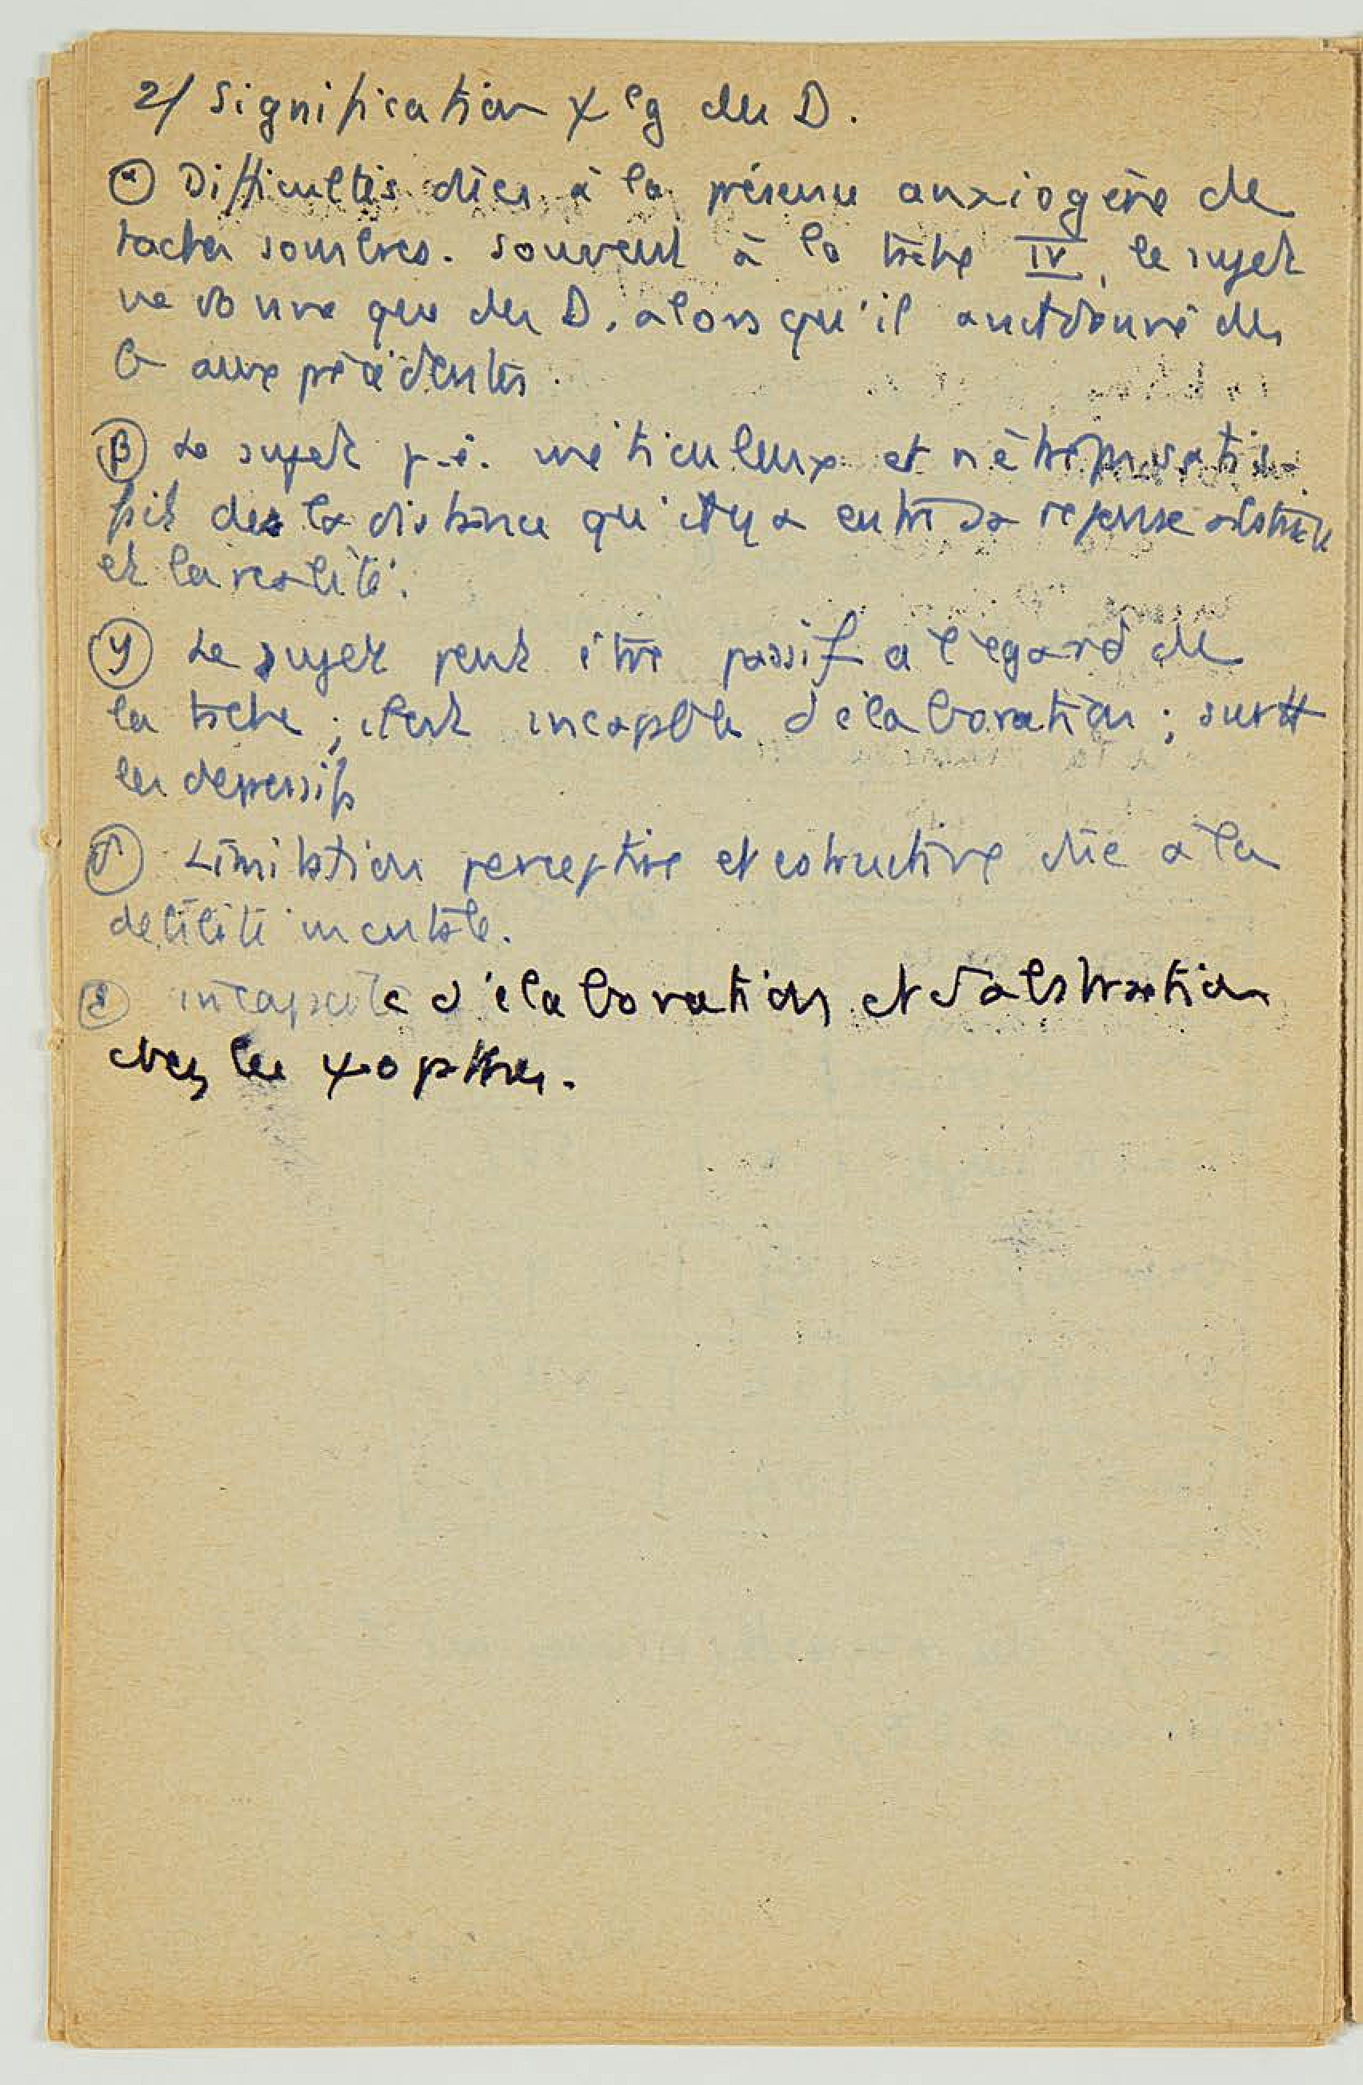 2/ Signification χ lg des D.
α Difficultés dües à la présence anxiogène de
taches sombres. Souvent à la tache IV, le sujet
ne donne que des D, alors qu'il avait donné des
G aux précédentes.
β Le sujet p.ê. méticuleux et n'être pas satis-
fait de la distance qu'il y a entre sa réponse abstraite
et la realité.
γ Le sujet peut être passif a l'égard de
la tache ; il est incapable d'élaboration ; surtt
les depressifs
δ Limitation perceptive et cstructive düe a la
debilité mentale.
ε incapacité d'élaboration et d'abstraction
chez les χopathes.